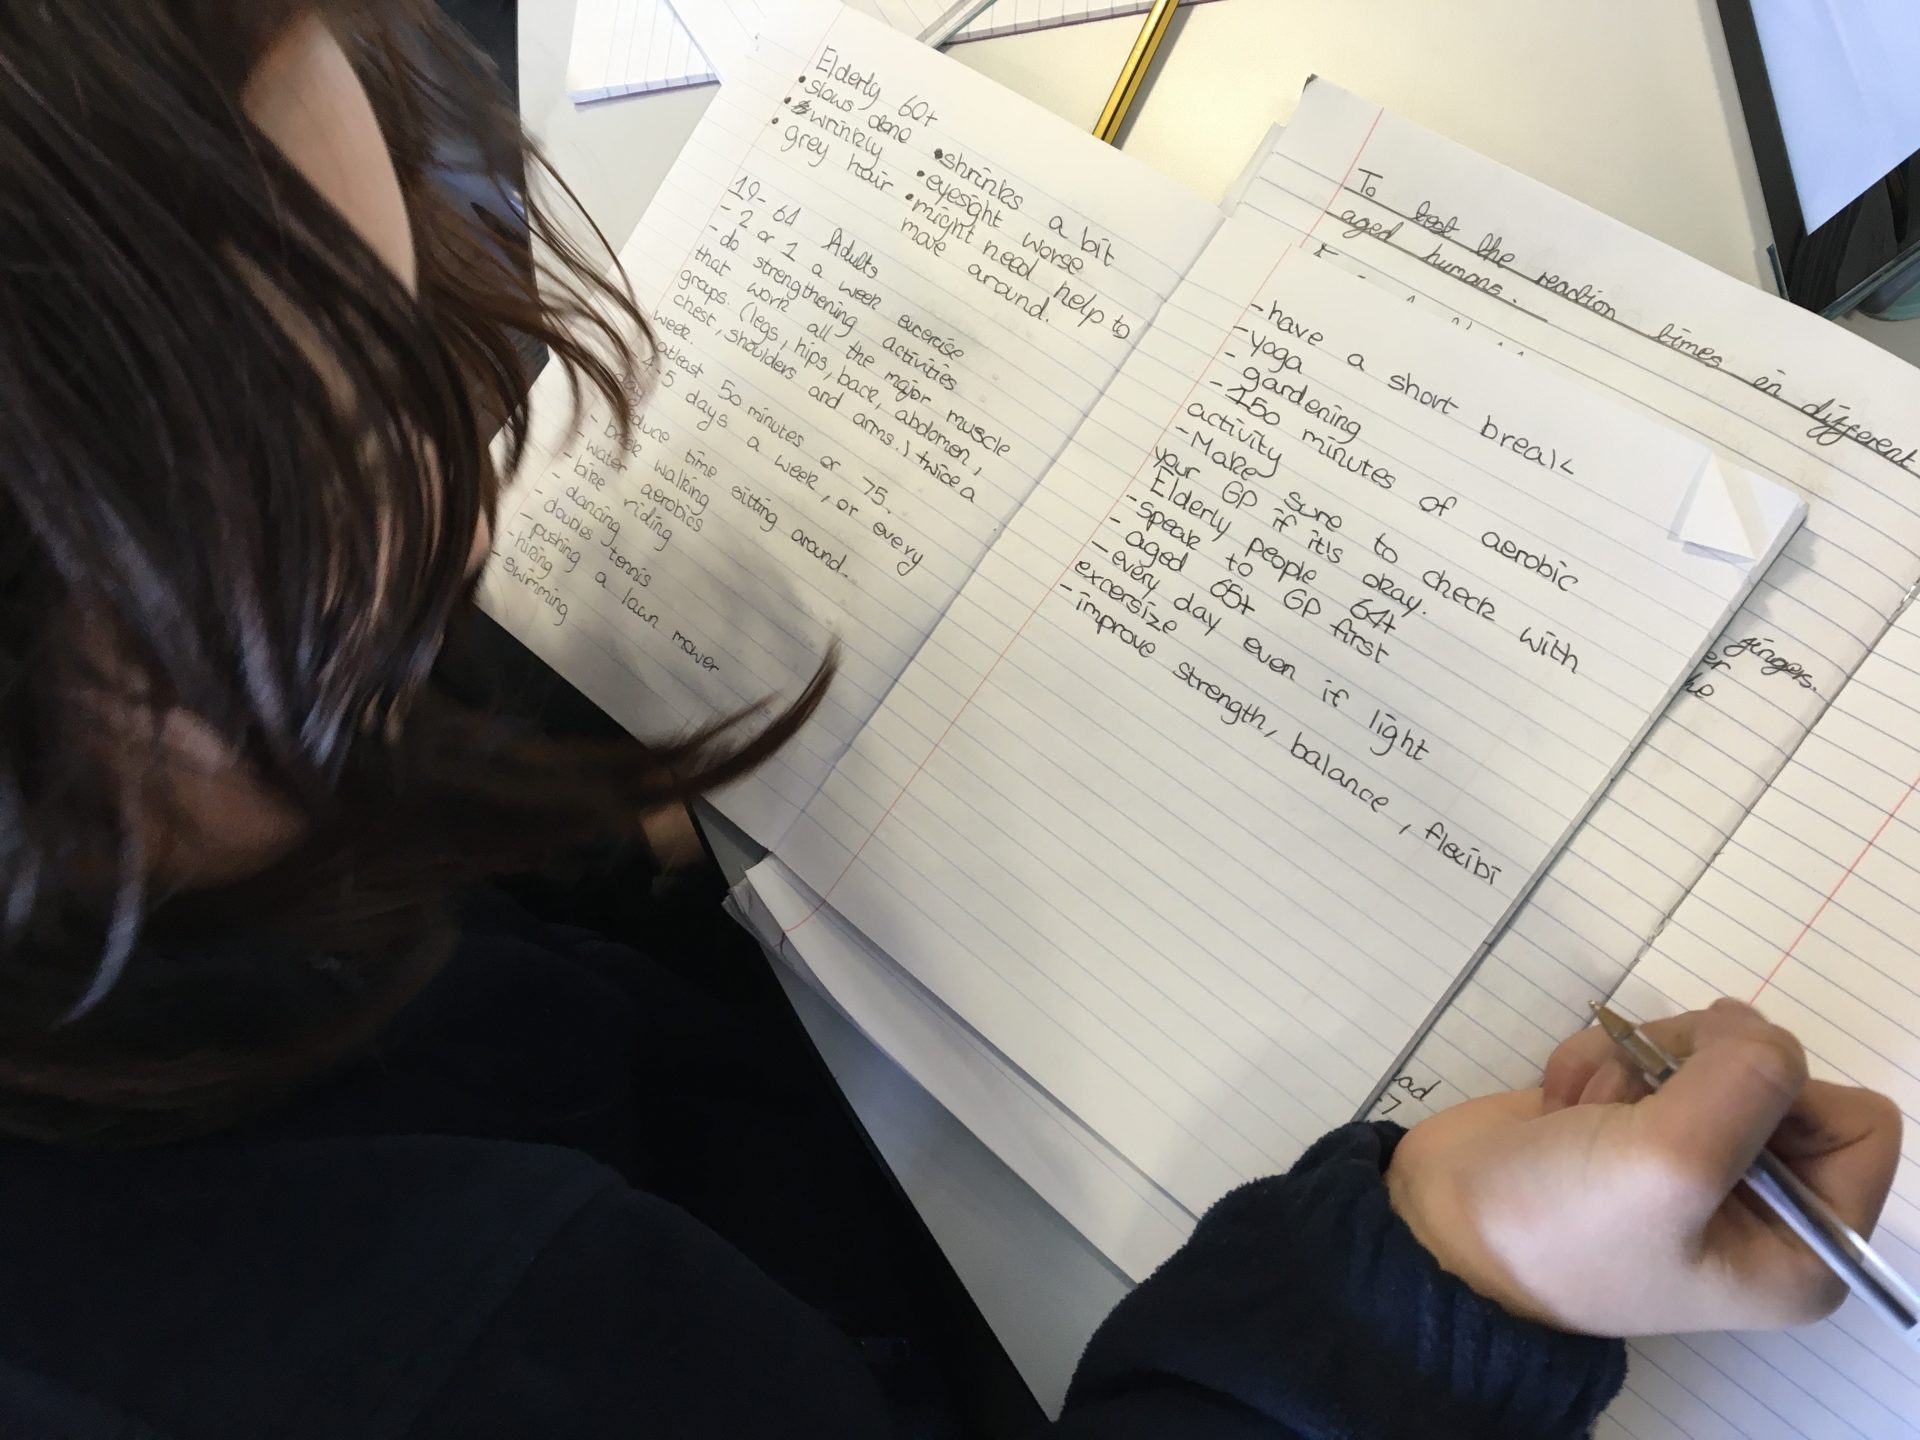 Elderly 60+
• slows done
• wrinkly
• grey hair
• shrinks a bit
• eyesight worse
• might need help to
move around.
19-64 Adults
- 2 or 1 a week excerise
- do strengthening activities
that work all the major muscle
groups. (legs, hips, back, abdomen,
chest, shoulders and arms.) twice a
week.
atleast 50 minutes or 75.
4-5 days a week, or every
day
reduce time sitting around.
- brisk walking
- water aerobics
- bike riding
- dancing
- doubles tennis
- pushing a lawn mower
- hiking
- swimming
- have a short break
- yoga
- gardening
- 150 minutes of aerobic
activity
- Make sure to check with
your GP if it's okay.
Elderly people 64+
- speak to GP first
- aged 65+
- every day even if light
excersize
- improve strength, balance, flexibi
To test the reaction times in different
aged humans.
gingers.
er